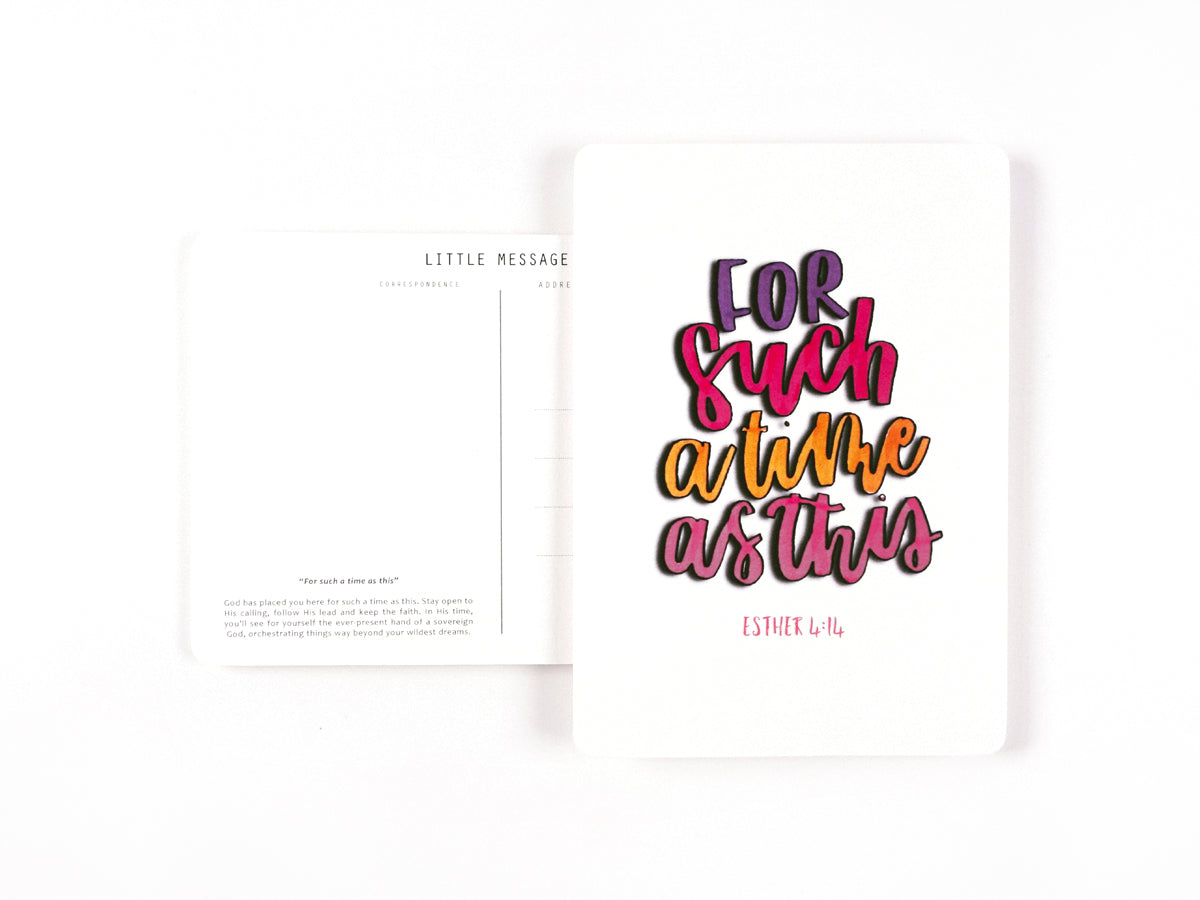 LITTLE MESSAGE
CORRESPONDENCE
“For such a time as this”
God has placed you here for such a time as this. Stay open to
His calling, follow His lead and keep the faith. In His time,
you'll see for yourself the ever-present hand of a sovereign
God, orchestrating things way beyond your wildest dreams.
FOR
such
a time
as this
ESTHER 4:14